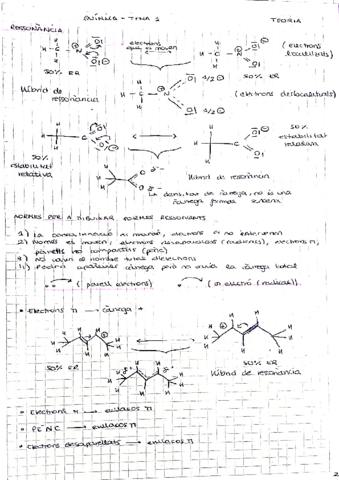 QUÍMICA - TEMA 1 TEORIA
RESSONÀNCIA
electrons que es mouen
(electrons localitzats)
50% ER 50% ER
Híbrid de ressonància
(electrons deslocalitzats)
50% estabilitat relativa
50% estabilitat relativa
Híbrid de ressonància
La densitat de càrrega, no és una càrrega formal
NORMES PER A DIBUIXAR FORMES RESSONANTS
1) La connectivitat es manté, electrons σ no intervenen
2) Només es mouen, electrons desaparellats (radicals), electrons π, parells no compartits (penc)
3) No canvia el nombre total d'electrons
4) Podrà aparèixer càrrega però no canvia la càrrega total
(parell electrons) (un electró (radical)).
• Electrons π → càrrega +
50% ER 50% ER
Híbrid de ressonància
• Electrons π → enllaços π
• PENC → enllaços π
• Electrons desaparellats → enllaços π
2